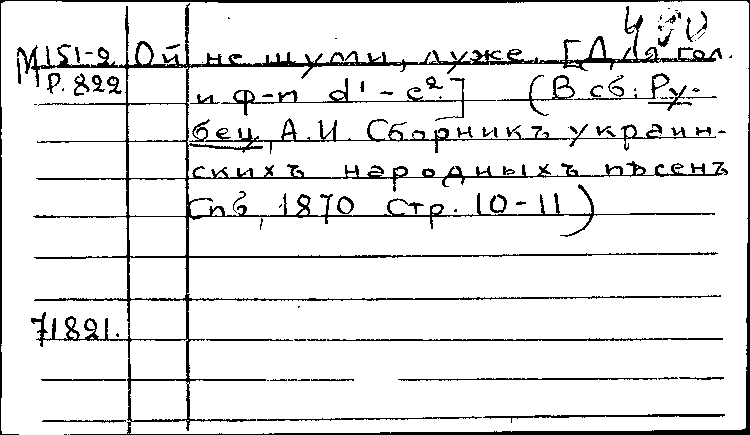 М151-2 Ой не шуми, луже. [Для гол.
Р.822 и ф-п d¹-e².] (В сб: Ру-
бец, А.И. Сборникъ украин-
скихъ народныхъ пѣсенъ
Спб, 1870 Стр. 10-11)
71821.